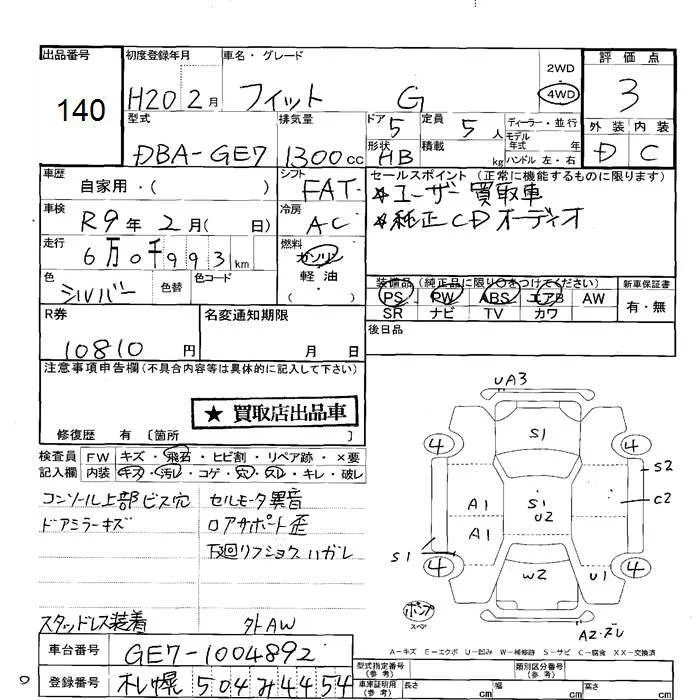 出品番号 初度登録年月 車名・グレード 2WD 評価点
140 H20 2月 フィット G 4WD 3
型式 排気量 ドア 5 定員 5人 ディーラー・並行 外装 内装
DBA-GE7 1300cc 形状 HB 積載 kg モデル年式 年 D C
ハンドル 左・右
車歴 自家用・( ) シフト FAT セールスポイント (正常に機能するものに限ります)
☆ユーザー買取車
車検 R9年 2月( 日) 冷房 AC ☆純正CDオーディオ
走行 6万0千993km 燃料 ガソリン
軽油
・( )
色 シルバー 色替 色コード 装備品 (純正品に限り○をつけてください) 新車保証書
PS PW ABS エアB AW 有・無
SR ナビ TV カワ
R券 名変通知期限 後日品
10810円 月 日
注意事項申告欄(不具合内容等は具体的に記入して下さい)
★ 買取店出品車
修復歴 有 〔箇所 〕
検査員 FW キズ・飛石・ヒビ割・リペア跡・×要
記入欄 内装 キズ・汚レ・コゲ・穴・スレ・キレ・破レ
コンソール上部ビス穴 セルモータ異音
ドアミラーキズ ロアサポート歪
下廻リフショクハガレ
スタッドレス装着 外AW
UA3
S1
4 4
S2
A1 S1 C2
U2
A1
S1
4 4
W2 U1
ポンプ
スペア
AZ・ZU
A－キズ E－エクボ U－凹み W－補修跡 S－サビ C－腐食 XX－交換済
車台番号 GE7-1004892
登録番号 札幌 504み4454
型式指定番号(参考) 類別区分番号(参考)
車庫証明用(参考) 長さ cm 幅 cm 高さ cm